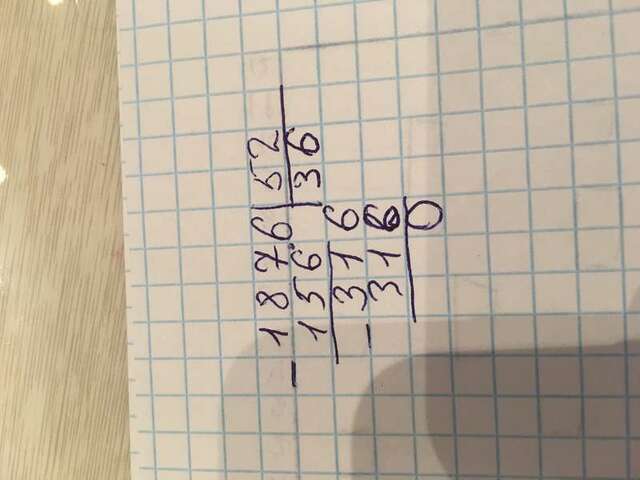 - 1876 | 52
156 | 36
- 316
316
0